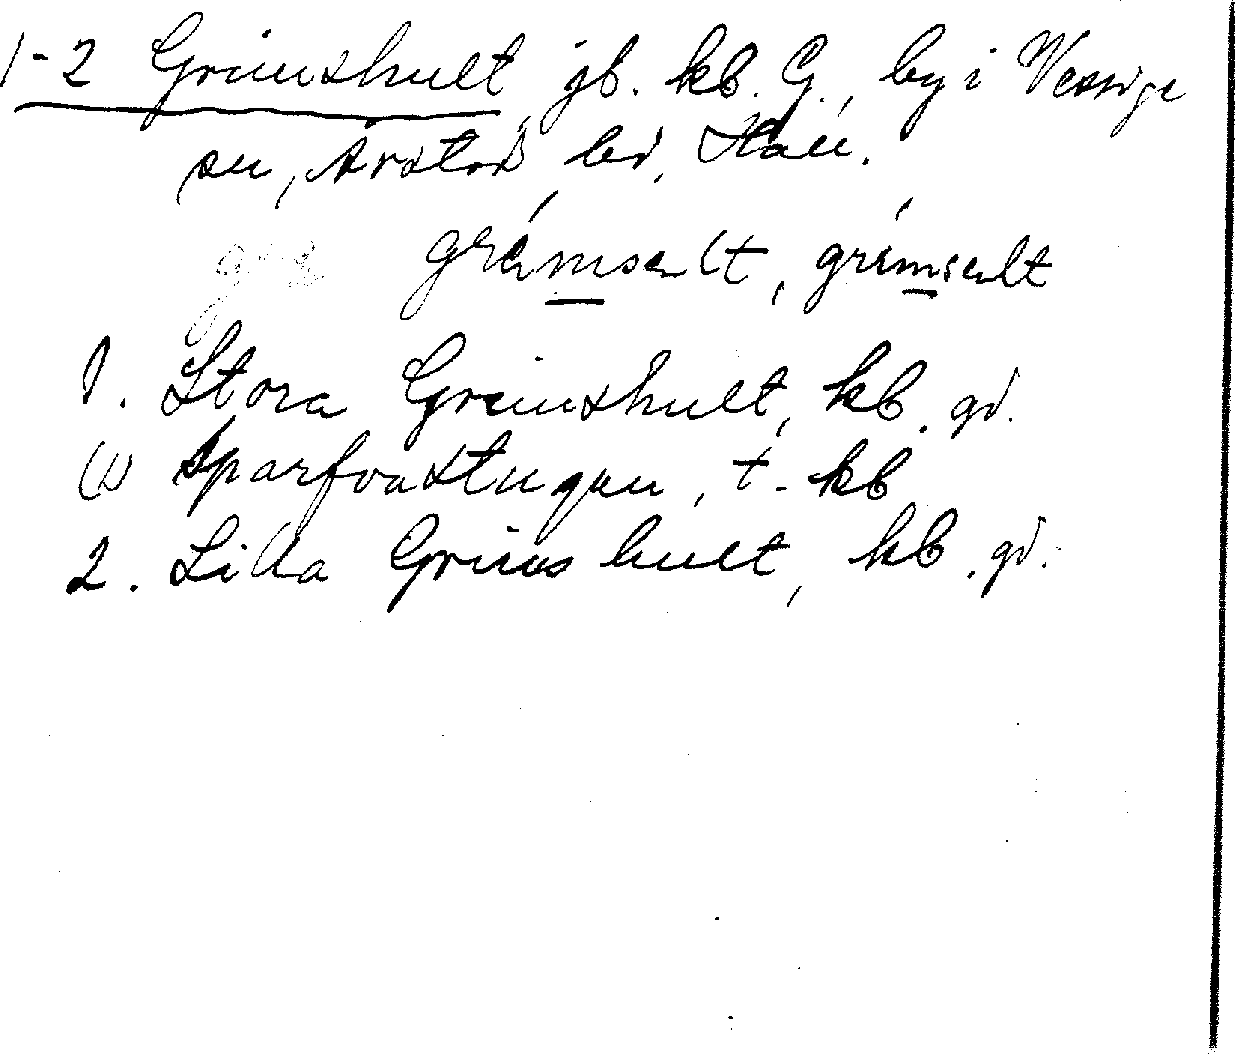 1-2 Grimshult, jb. kb. G., by i Vessige
sn, Årstad hd, Hall.
grémsealt, grímsealt
1. Stora Grimshult, kb. gd.
(1) Sparfvastugan, t. kb
2. Lilla Grimshult, kb. gd.